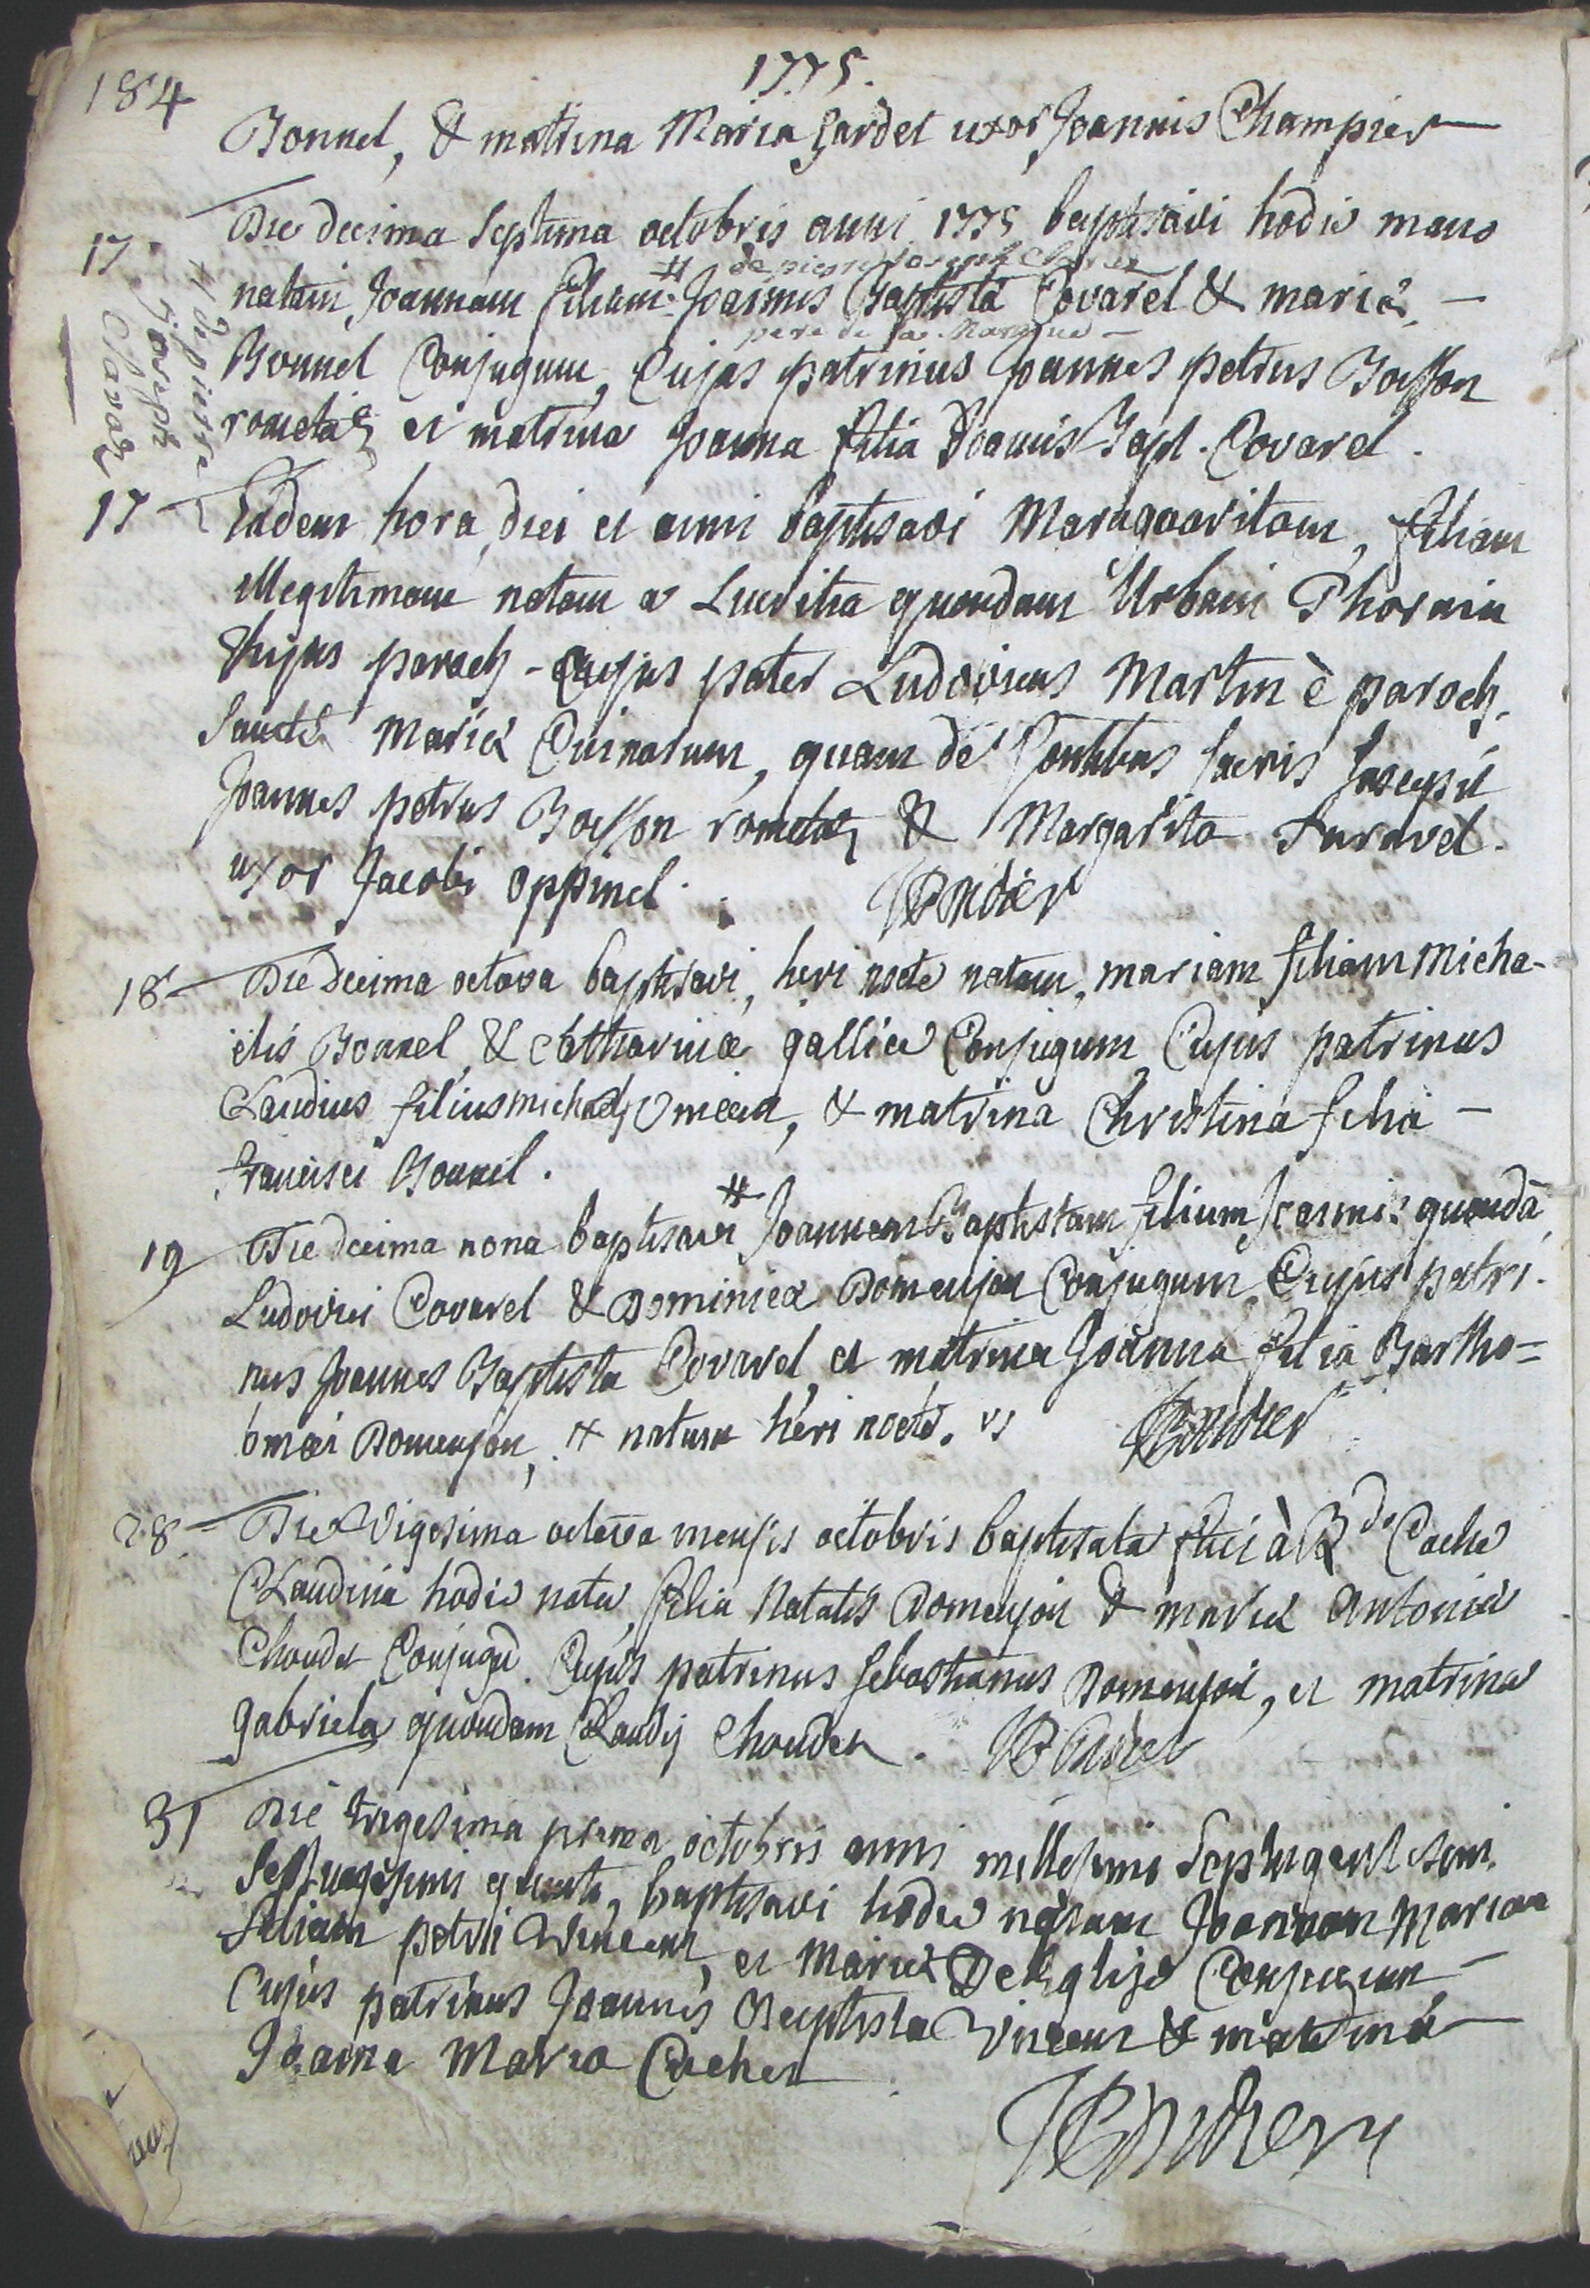 184
1775.
Bonnel, & matrina Maria Jardet uxor Joannis Champier
17.
Die decima septima octobris anni 1775 baptisavi hodie mane
# de pierre Joseph
natam, Joannam filiam # Joannis Baptistæ Covarel & mariæ
pere de la
Bonnel Conjugum, Cujus patrinus Joannes petrus Boësson
rometa, et matrina Joanna filia Joannis Bapt. Covarel.
# de pierre
Joseph
17
Eadem hora, diei et anni baptisavi Margaaritam, filiam
illegitimam natam a Lucretia quondam Urbani Thornin
hujus paroch - Cujus pater Ludovicus Martin è paroch.
Sanctæ Mariæ Cuinarum, quam de fontibus sacris suscepit
Joannes petrus Boësson & Margarita Suravel.
uxor Jacobi Oppinel.
18
Die decima octava baptisavi, heri nocte natam, mariam filiam Micha-
ëlis Bonnel & Catharinæ gallice Conjugum, Cujus patrinus
Claudius filius michaelis & matrina Christina filia
francisci Bonnel.
19
Die decima nona baptisavi # Joannem Baptistam filium Joannis quondā
Ludovici Covarel & Dominicæ Domenjon Conjugum Cujus patri-
nus Joannes Baptista Covarel, et matrina Joanna filia Bartho-
omæi Domenjon, # natum heri nocte.
28
Die Vigesima octava mensis octobris baptisata fuit à Rdo Cache
Claudina hodie nata, filia Natalis Domenjon & mariæ Antoniæ
Choudet Conjugū. Cujus patrinus Sebastianus Domenjon, et matrina
Gabriela quondam Claudij Choudet.
31
Die trigesima prima octobris anni millesimi Septingentesimi
Septuagesimi quinti, baptisavi hodie natam Joannam Mariam
filiam petri Vincent, et Mariæ Deléglise Conjugum
Cujus patrinus Joannes Baptista Vincent & matrina
Joanna Maria